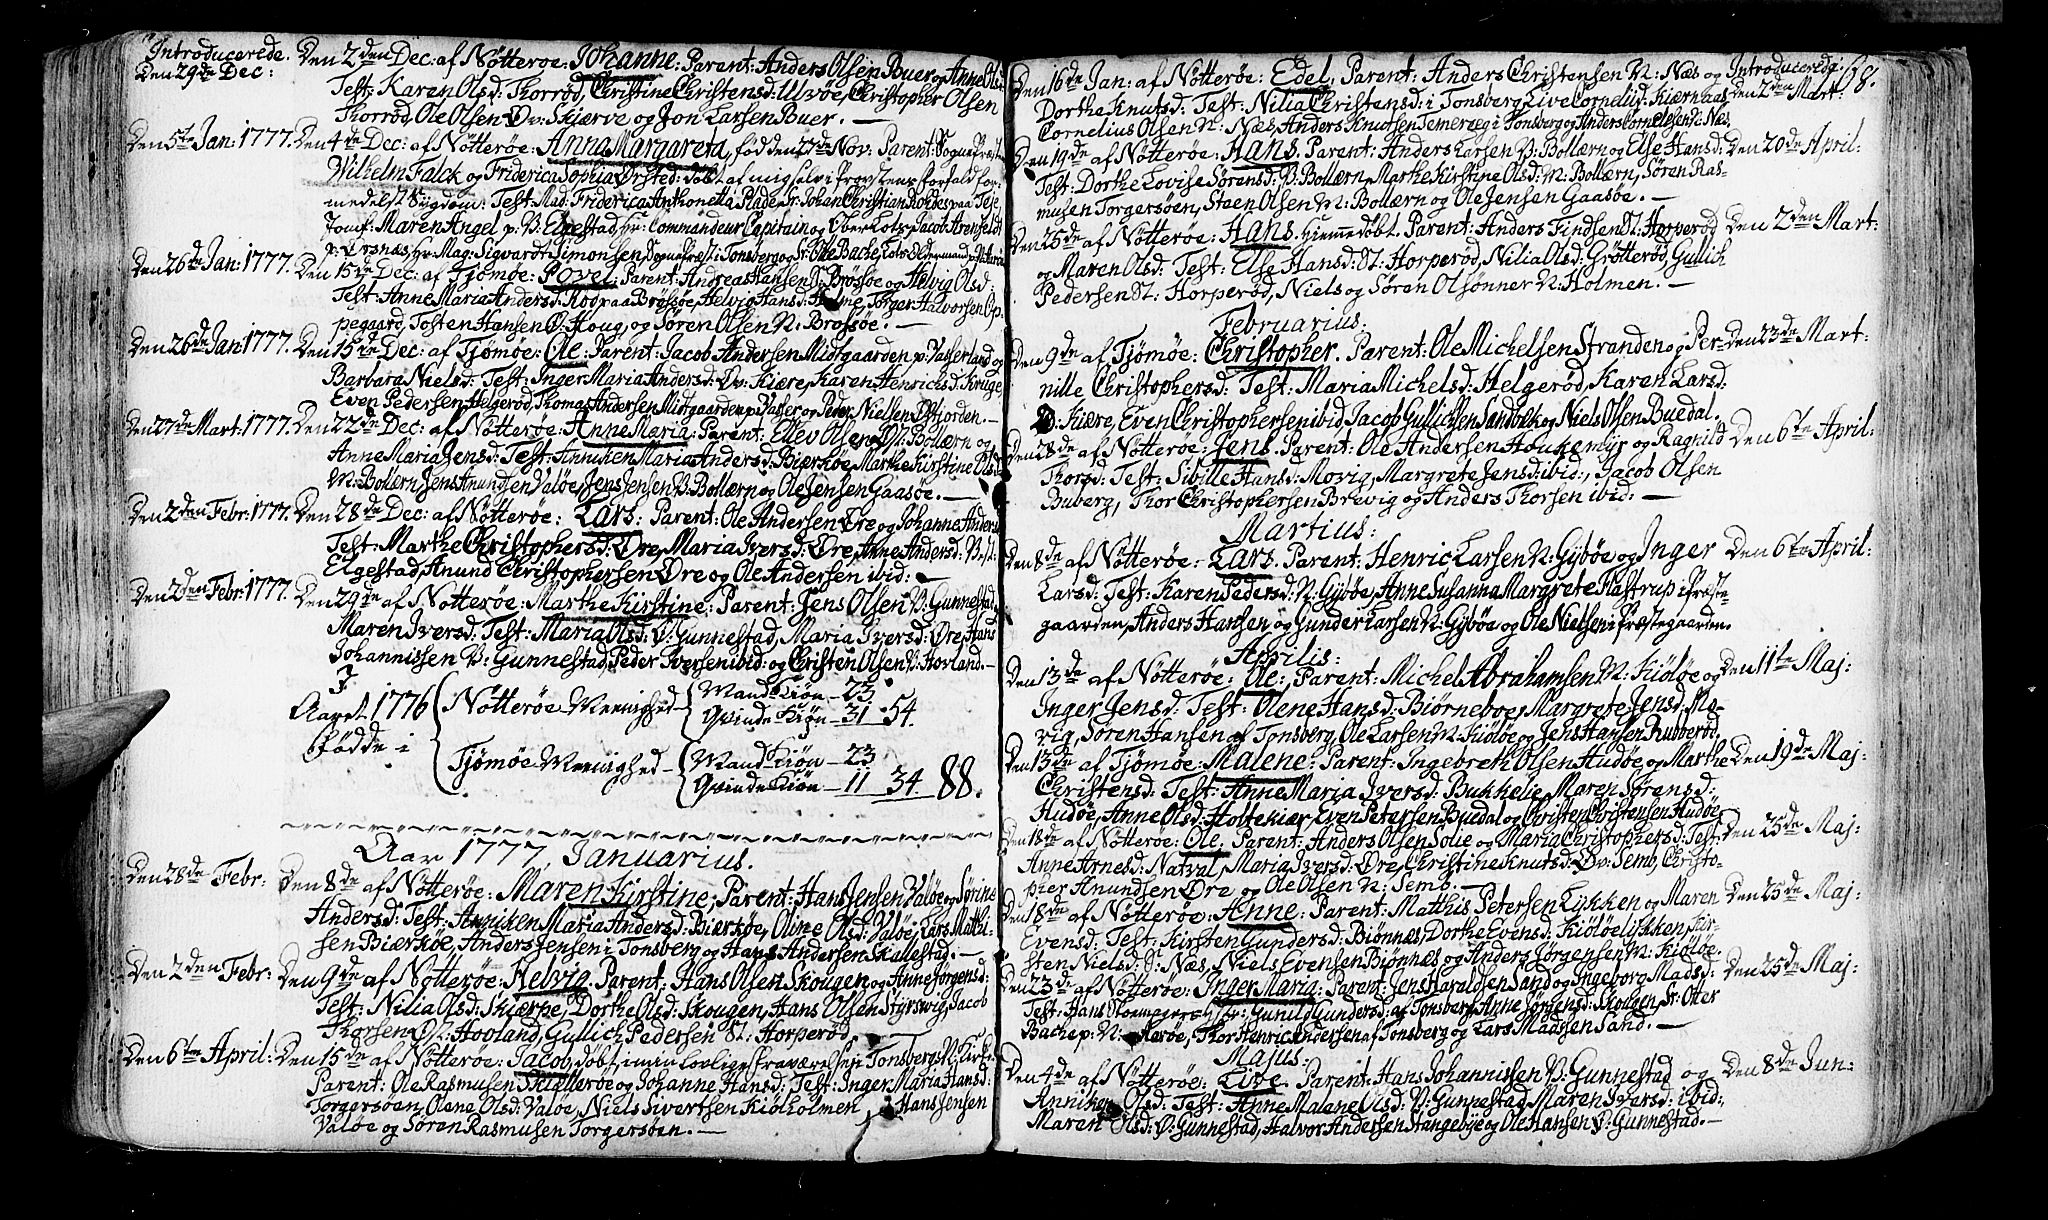 Introducerede. Den 2den Dec: af Nötteroe: Johanne: Parent: Anders Olsen Buer og Anne Olsd:
Den 29de Dec:
Test: Karen Olsd: Thorröd, Christine Christensd: Ulvöe, Christopher Olsen
Thorröd, Ole Olsen Øv: Skjerve og Jon Larsen Buer. —
Den 5te Jan: 1777. Den 4de Dec: af Nötteröe: Anna Margareta, föd den 27de Nov: Parent: Sogne Præst
Wilhelm Falck og Friderica Sophia Ørsted: döbt af mig selv i Provstens forfald for-
medelst Sygdom: Test: Mad: Friderica Anthonetta Plade, Sr: Johan Christian Rohdes paa Teje,
Jomf: Maren Angel p: V: Elgestad, Hr: Commandeur Capitain og Ober Lots Jacob Arenfeldt
p: Örsnæs, Hr: Mag: Sigvardt Simonsen, Sogne Præst i Tonsberg og Sr: Otte Bache, Lots Oldermand p: N: Haröe
Den 26de Jan: 1777. Den 15de Dec: af Tjömöe: Povel: Parent: Andreas Hansen S: Brössöe og Helvig Olsd:
Test: Anne Maria Andersd: Rød paa Brössöe, Helvig Hansd: Höne, Torger Halvorsen Op-
pegaard, Tosten Hansen Ø: Houg, og Sören Olsen N: Brössöe. —
Den 26de Jan: 1777. Den 15de Dec: af Tjömöe: Ole: Parent: Jacob Andersen Midtgaarden p: Vasserland og
Barbara Nielsd: Test: Inger Maria Andersd: Øv: Kiære, Karen Henrichsd: Kruge,
Even Pedersen Helgeröd, Thomas Andersen Midtgaarden p: Vasser og Peder Nielsen Østjorden. —
Den 27de Mart: 1777. Den 22de Dec: af Nötteröe: Anne Maria: Parent: Ellev Olsen M: Bollærn og
Anne Maria Jensd: Test: Anniken Maria Andersd: Bierköe, Marthe Kirstine Olsd:
M: Bollern, Jens Anundsen Valöe, Jens Jensen V: Bollærn og Ole Jensen Gaasöe. —
Den 2den Febr: 1777. Den 28de Dec: af Nötteröe: Lars: Parent: Ole Andersen Øre og Johanne Andersd:
Test: Marthe Christophersd: Øre, Maria Iversd: Øre, Anne Andersd: Vest:
Elgestad, Anund Christophersen Øre og Ole Andersen ibid: —
Den 2den Febr: 1777. Den 29de af Nötteröe: Marthe Kirstine: Parent: Jens Olsen V: Gunnestad,
Maren Iversd: Test: Maria Olsd: V: Gunnestad, Maria Iversd: Øre, Hans
Johannissen V: Gunnestad, Peder Iversen ibid: og Christen Olsen V: Hovland. —
J
Aaret 1776 Nötteröe Meenighed Mand Kiön — 23
Födde i Qvinde Kiön — 31 54.
Tjömöe Meenighed Mand Kiön — 23
Qvinde Kiön — 11 34. 88.
Aar 1777, Januarius.
Den 28de Febr: Den 8de af Nötteröe: Maren Kirstine; Parent: Hans Jensen Valöe og Sörine
Andersd: Test: Anniken Maria Andersd: Bierköe, Oline Olsd: Valöe, Lars Mathi-
sen Bierköe, Anders Jensen i Tonsberg og Hans Andersen Skallestad. —
Den 2den Febr: Den 9de af Nötteröe: Helvig: Parent: Hans Olsen Skougen og Anne Jörgensd:
Test: Nilia Olsd: Skjerpe, Dorthe Olsd: Skougen, Hans Olsen Styrsvig, Jacob
Thorsen N: Hooland, Gullich Pedersen St: Horperöd. —
Den 6te April: Den 15de af Nötteröe: Jacob, döbt i min lovlige fraværelse i Tonsbergs V: Kirke
Parent: Ole Rasmusen Skalleröe og Johanne Hansd: Test: Inger Maria Hansd:
Torgersöen, Olene Olsd: Valöe, Niels Sivertsen Kiöholmen, Hans Jensen
Valöe og Sören Rasmusen Torgersöen. —
68.
Den 16de Jan: af Nötteröe: Edel, Parent: Anders Christensen N: Næs og Introducerede.
Dorthe Knutsd: Test: Nilia Christensd: i Tonsberg, Live Corneliid: Kiærnaas Den 2den Mart:
Cornelius Olsen N: Næs, Anders Knutsen Temeræg i Tonsberg og Anders Cornelesen N: Næs.
Den 19de af Nötteröe: Hans. Parent: Anders Larsen V: Bollærn og Else Hansd: Den 20de April:
Test: Dorthe Lovise Sörensd: V: Bollærn, Marthe Kirstine Olsd: M: Bollærn, Sören Ras-
musen Torgersöen, Steen Olsen M: Bollærn og Ole Jensen Gaasöe. —
Den 25de af Nötteröe: Hans. Hjemmedöbt. Parent: Anders Findsen St: Horperöd Den 2den Mart:
og Maren Olsd: Test: Else Hansd: St: Horperöd, Nilia Olsd: Grötteröd, Gullich
Pedersen St: Horperöd, Niels og Sören Olsönner N: Holmen. —
Februarius:
Den 9de af Tjömöe: Christopher. Parent: Ole Michelsen Stranden og Per- Den 23de Mart:
nille Christophersd: Test: Maria Michelsd: Helgeröd, Karen Larsd:
Ø: Kiære, Even Christophersen ibid, Jacob Gullichsen Sandbek og Niels Olsen Buedal.
Den 28de af Nötteröe: Jens. Parent: Ole Andersen Houkemyr og Ragnild Den 6te April:
Thorsd: Test: Sibille Hansd: Movig, Margrete Jensd: ibid:, Jacob Olsen
Buberg, Thor Christophersen Brevig og Anders Thorsen ibid: —
Martius:
Den 8de af Nötteröe: Lars. Parent: Henric Larsen N: Gyböe og Inger Den 6te April:
Larsd: Test: Karen Pedersd: N: Gyböe, Anne Susanna Margrete Hastrup i Præste-
gaarden, Anders Hansen og Gunder Larsen N: Gyböe og Ole Nielsen i Præstegaarden.
Aprilis:
Den 13de af Nötteröe: Ole: Parent: Michel Abrahamsen N: Kiölöe og Den 11te Maj:
Inger Jensd: Test: Olene Hansd: Biörneboe, Margrete Jensd: Mo-
vig, Sören Hansen af Tonsberg, Ole Larsen N: Kiölöe og Jens Hansen Rubberöd.
Den 13de af Tjömöe: Malene: Parent: Ingebreth Olsen Hudöe og Marthe Den 19de Maj:
Christensd: Test: Anne Maria Iversd: Bukkelie, Maren Sörensd:
Hudöe, Anne Olsd: Holtekiær, Even Petersen Buedal og Christen Christensen Hudöe
Den 18de af Nötteröe: Ole. Parent: Anders Olsen Solie og Maria Christophersd: Test: Den 25de Maj:
Anne Arnesd: Natval, Maria Iversd: Øre, Christine Knutsd: Øv: Semb, Christo-
pher Anundsen Øre og Ole Olsen N: Semb. —
Den 18de af Nötteröe: Anne: Parent: Matthis Petersen Lykken og Maren Den 25de Maj:
Evensd: Test: Kirsten Gundersd: Biönnæs, Dorthe Evensd: Kiölöelikken, Kir-
sten Nielsd: S: Næs, Niels Evensen Biönnæs og Anders Jörgensen N: Kiölöe.
Den 23de af Nötteröe: Inger Maria: Parent: Jens Haraldsen Sand og Ingeborg Madsd: Den 25de Maj:
Test: Hans Gunild Gundersd: af Tonsberg, Anne Jörgensd: Skougen, Sr: Otter
Bache p: N: Haröe, Thor Henric Andersen af Tonsberg og Lars Madssen Sand. —
Majus:
Den 4de af Nötteröe: Live. Parent: Hans Johannissen V: Gunnestad og Den 8de Jun:
Anniken Olsd: Test: Anne Malene Olsd: V: Gunnestad, Maren Iversd: ibid:,
Maren Olsd: Ø: Gunnestad, Halvor Andersen Stangebye og Ole Hansen Ø: Gunnestad. —